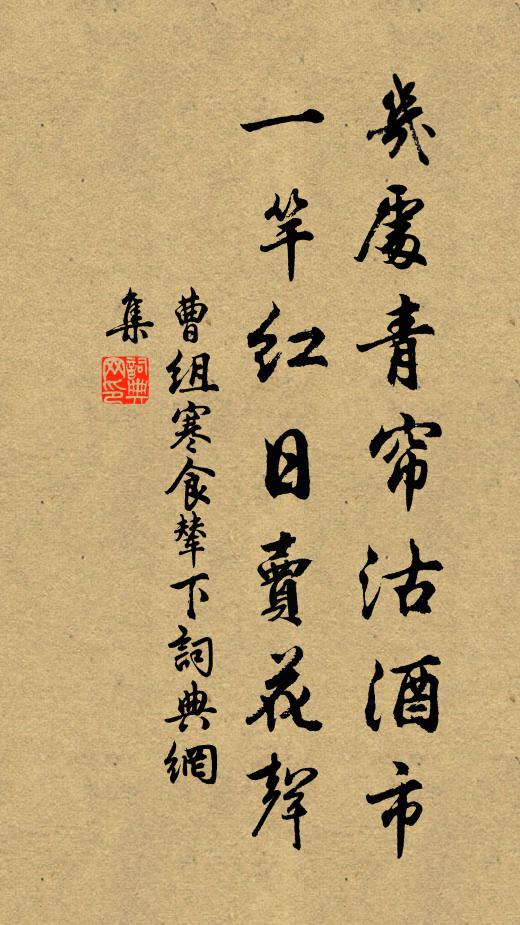 幾處青帘沽酒市
一竿紅日賣花聲
曹組寒食輦下詞典網
集
詞典網印